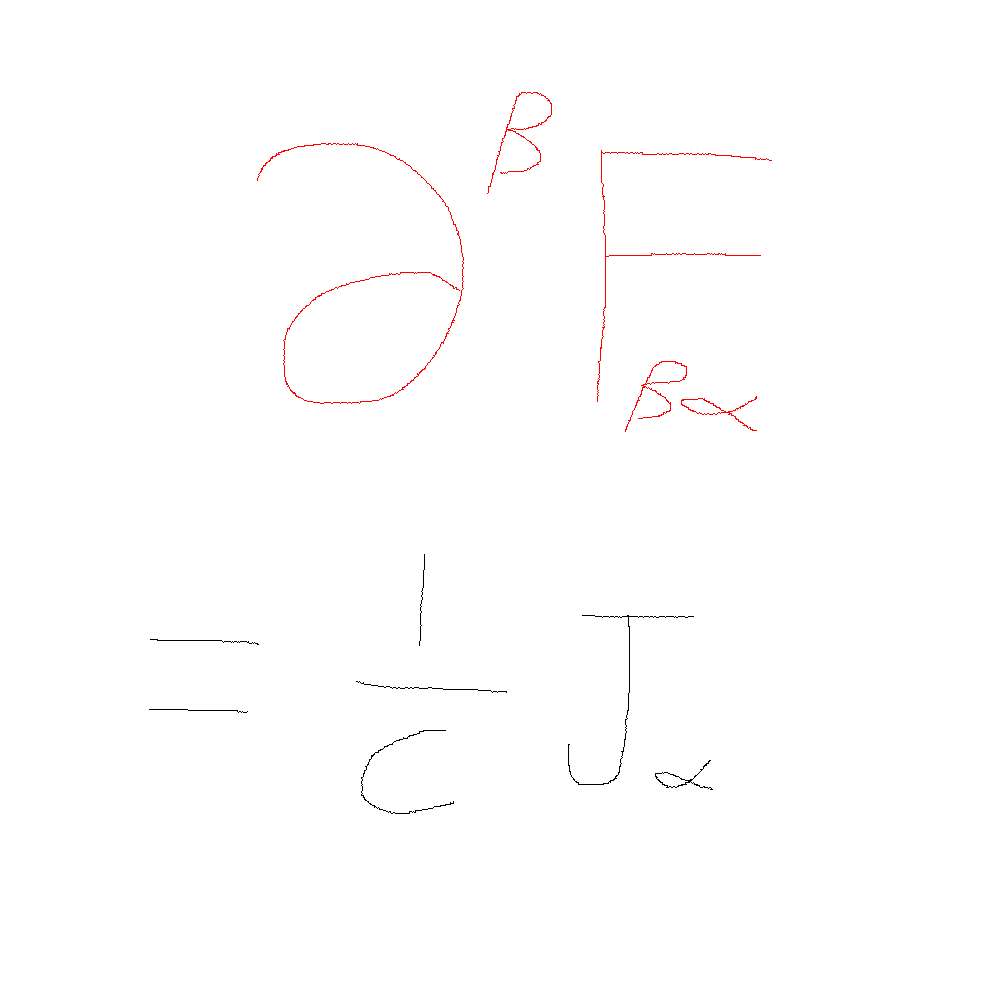 ∂^β F_βα
= 1/c J_α